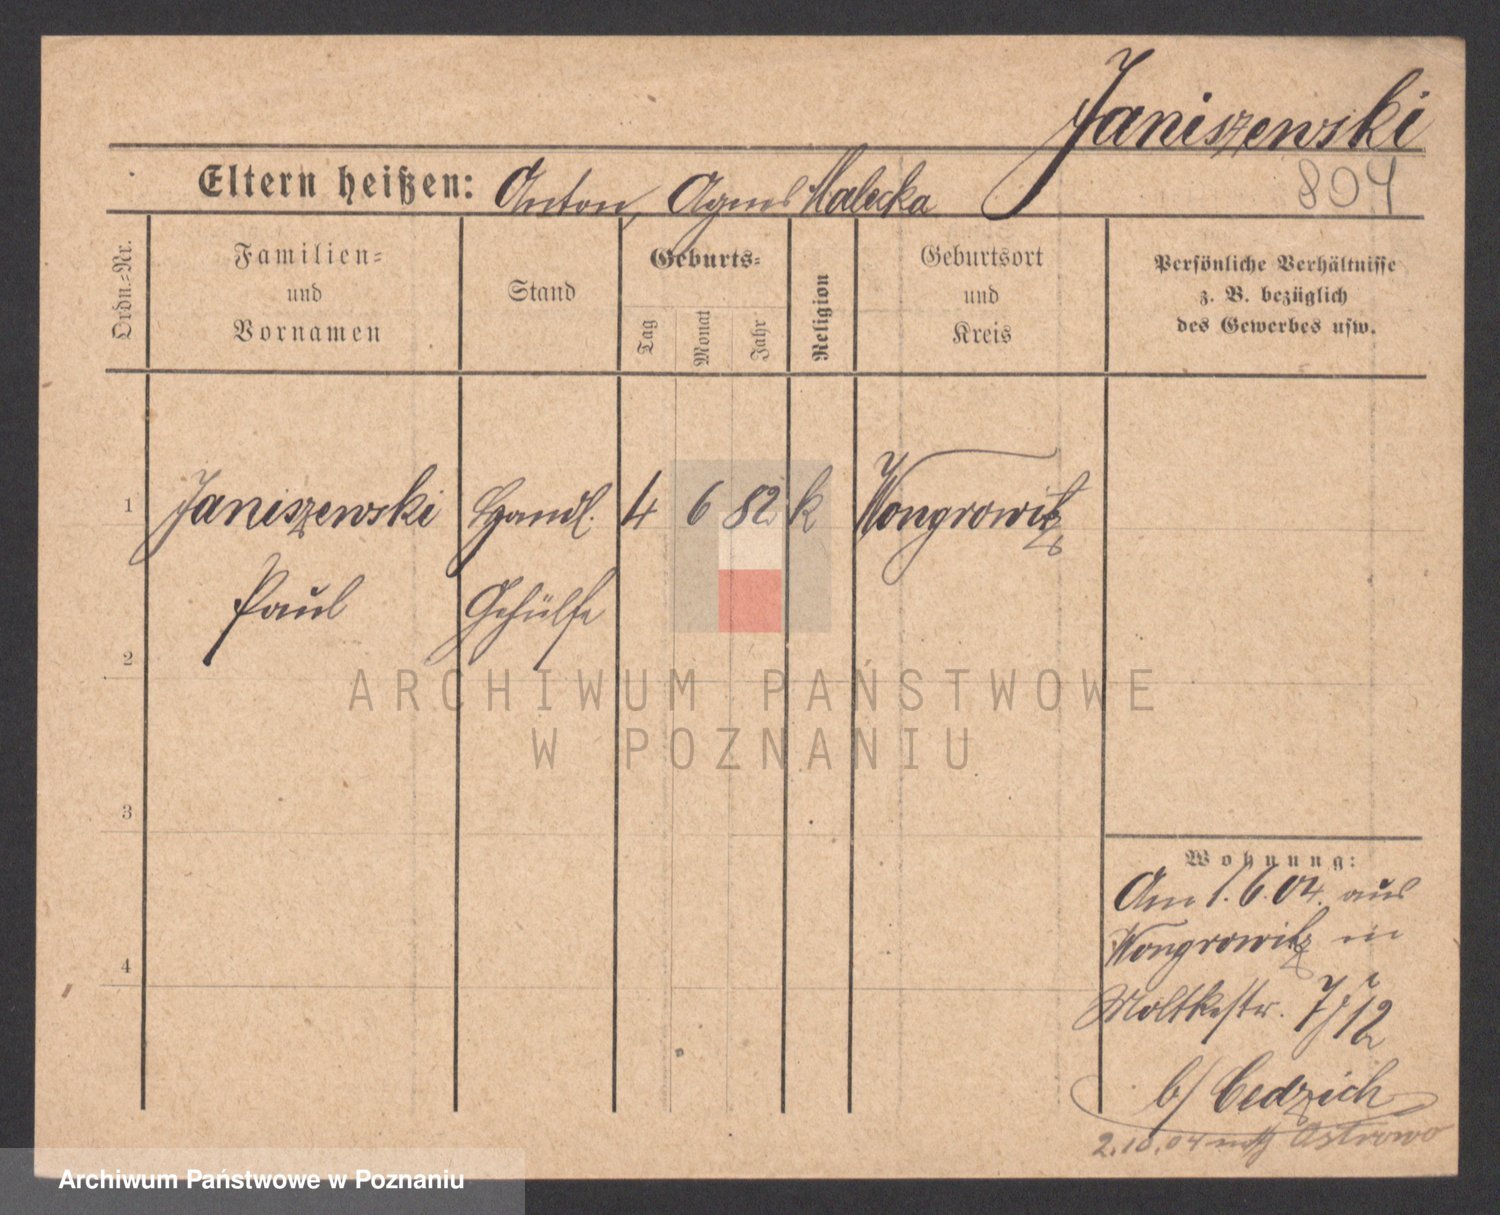 Janiszewski
804
Eltern heißen: Anton, Agnes Malecka
Ordn.=Nr.
Familien=
und
Vornamen
Stand
Geburts=
Tag
Monat
Jahr
Religion
Geburtsort
und
Kreis
Persönliche Verhältnisse
z. B. bezüglich
des Gewerbes usw.
1 Janiszewski Handl. 4 6 82 k Wongrowitz
Paul Gehülfe
2
ARCHIWUM PAŃSTWOWE
W POZNANIU
3
Wohnung:
Am 1.6.04. aus
Wongrowitz in
4
Moltkestr. 7
b/ Cedzich
2.10.04 Ostrowo
Archiwum Państwowe w Poznaniu